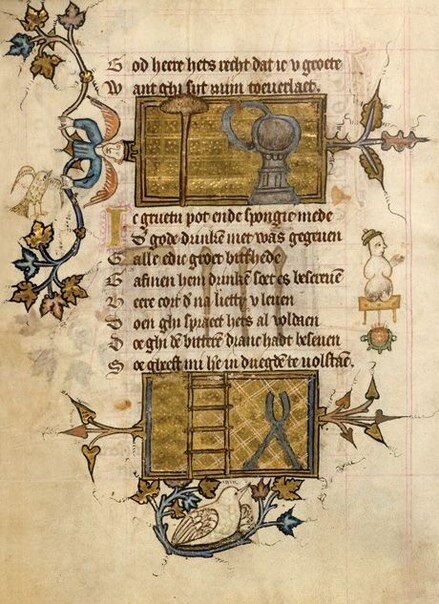 God heere hets recht dat ic v groete
Want ghi syt mijn toeuerlaet.
Ic gruetu pot ende spongie mede
D gode drinkē met was gegeuen
Galle edic groet bitthede
hem drinkē soet es
Heere cort d na v leuen
Doen ghi spraect hets al voldaen
Doe ghi dē bitterē dranc hadt beseuen
Soe mi he in duegdē te uolstaē.